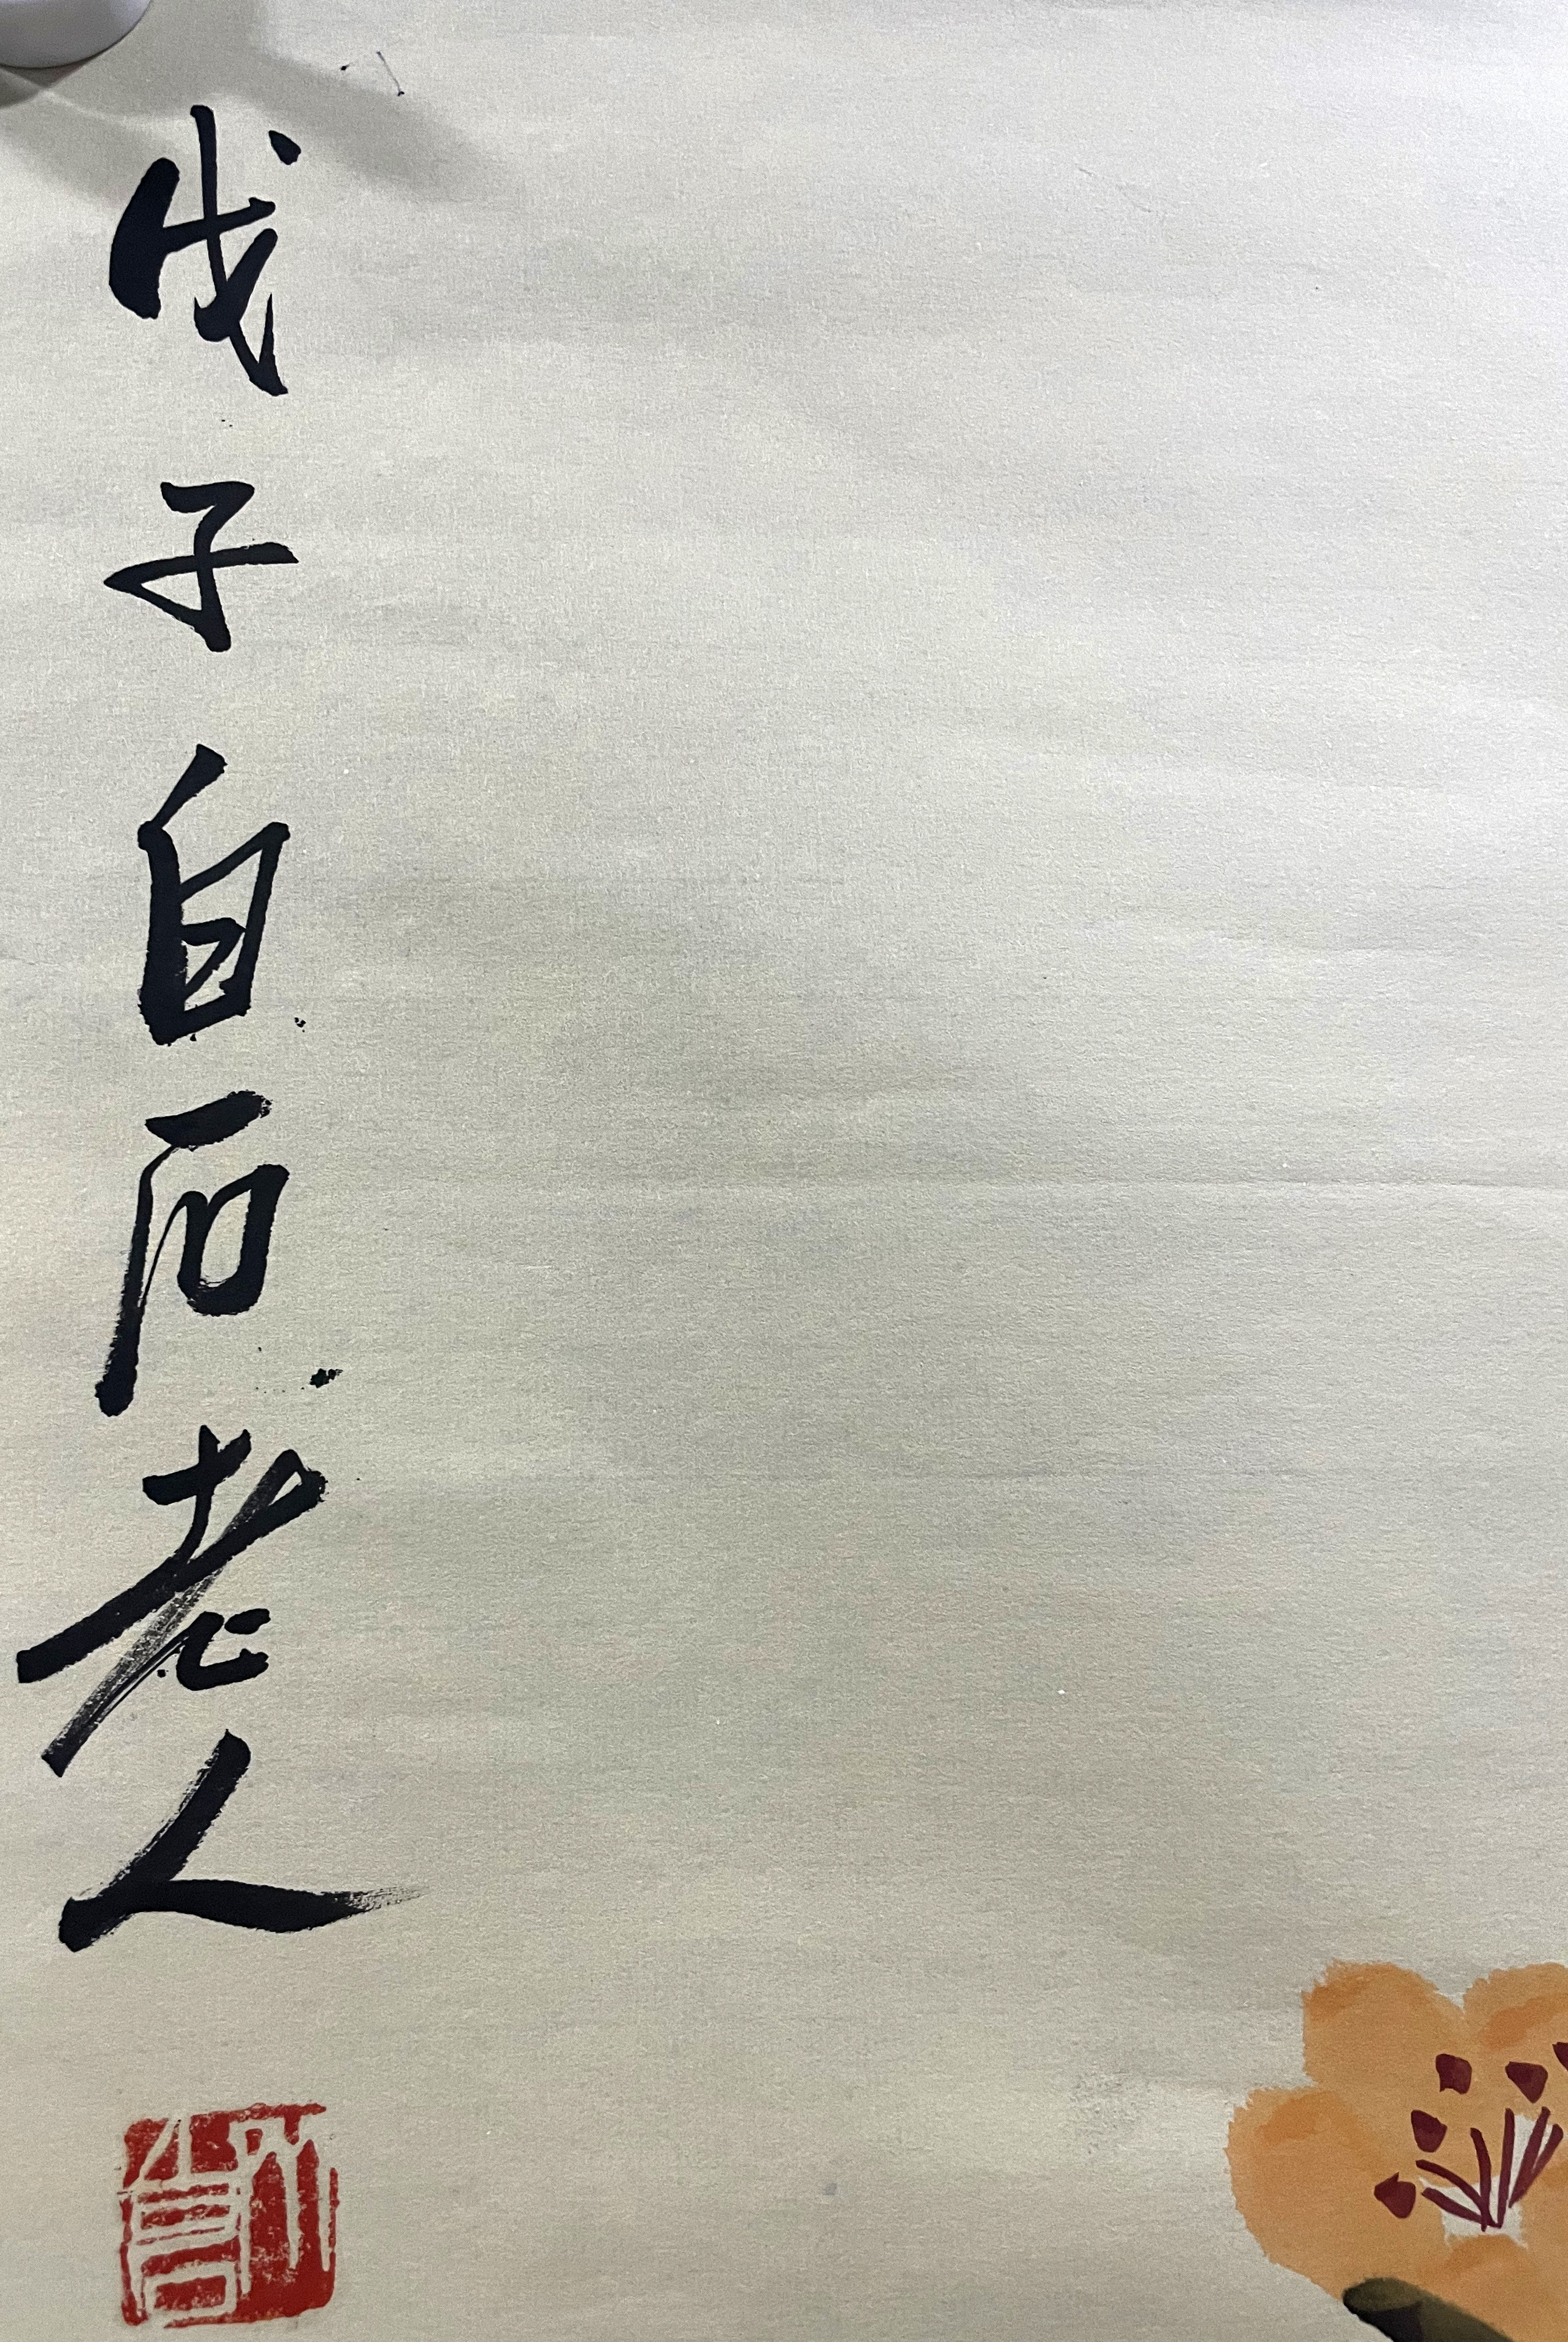 戊子白石老人